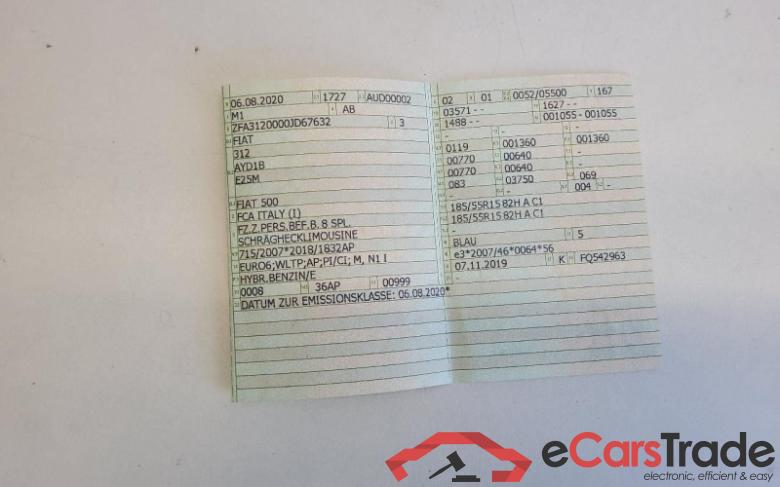 06.08.2020 1727 AUD00002
M1 AB
ZFA3120000JD67632 3
FIAT
312
AYD1B
E25M
FIAT 500
FCA ITALY (I)
FZ.Z.PERS.BEF.B. 8 SPL.
SCHRÄGHECKLIMOUSINE
715/2007*2018/1832AP
EURO6;WLTP;AP;PI/CI; M, N1 I
HYBR.BENZIN/E
0008 36AP 00999
DATUM ZUR EMISSIONSKLASSE: 06.08.2020*
02 01 0052/05500 167
03571 - - 1627 - -
1488 - - 001055 - 001055
- - -
0119 001360 001360
00770 00640 -
00770 00640 -
083 03750 069
- - 004 -
185/55R15 82H A C1
185/55R15 82H A C1
-
BLAU 5
e3*2007/46*0064*56
07.11.2019 K FQ542963
-
eCarsTrade
electronic, efficient & easy